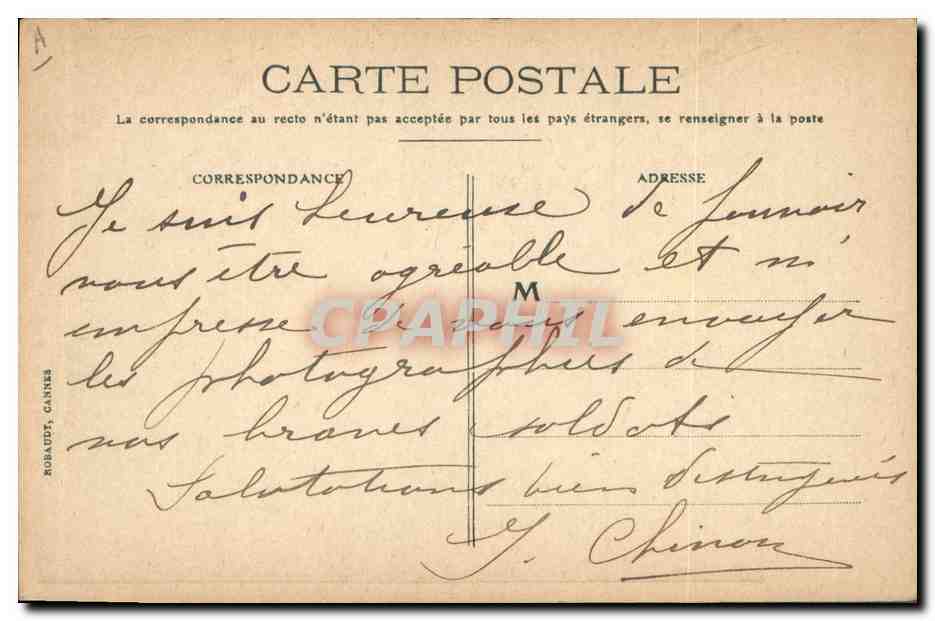 A
CARTE POSTALE
La correspondance au recto n'étant pas acceptée par tous les pays étrangers, se renseigner à la poste
CORRESPONDANCE
ADRESSE
Je suis heureuse de pouvoir
vous être agréable et m'
M
empresse de vous envoyer
CPAPHIL
les photographies de
nos braves soldats
Salutations bien distinguées
Chinon
ROBAUDT, CANNES